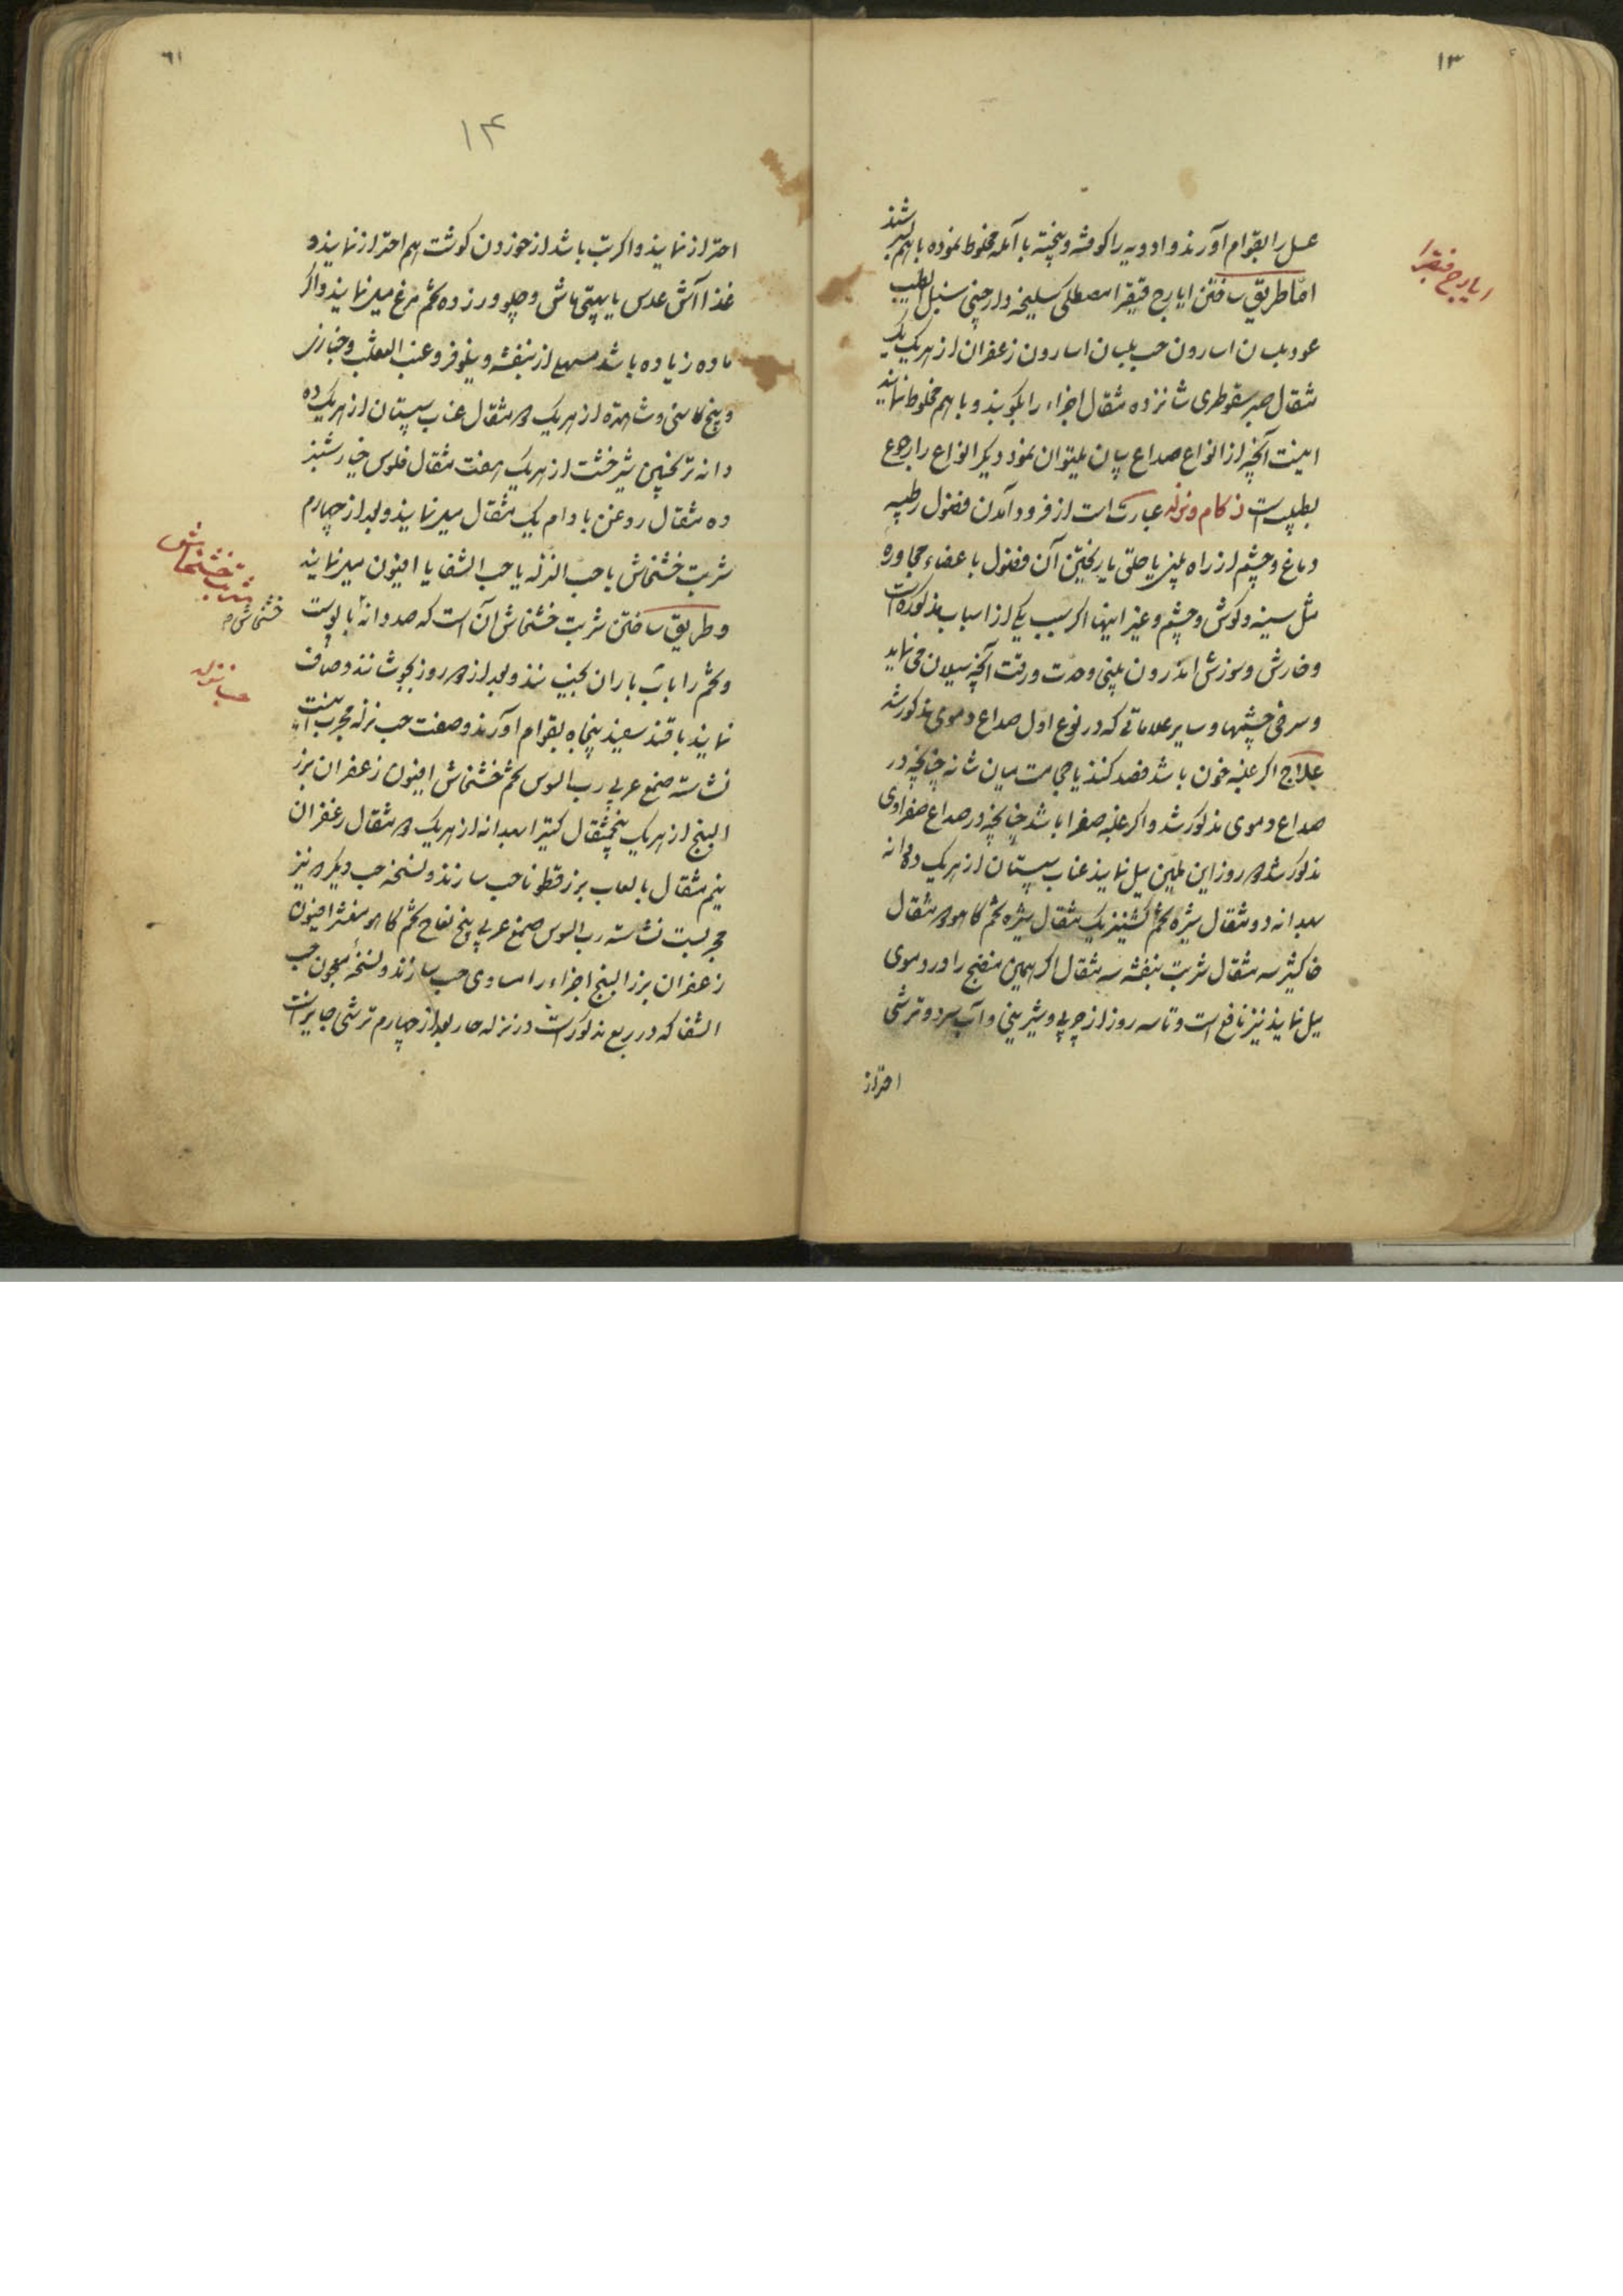 ۱۳
ایارج فیقرا
عسل را بقوام آورند و ادویه را کوفته و بیخته با آمله مخلوط نموده با هم بسرشند
اما طریق ساختن ایارج فیقرا مصطکی سلیخه دارچینی سنبل الطیب
عود بلسان اسارون حب بلسان اسارون زعفران از هریک یک
مثقال صبر سقوطری شانزده مثقال اجزاء را بکوبند و با هم مخلوط نمایند
اینست آنچه از انواع صداع بیان میتوان نمود دیگر انواع را رجوع
بطبیب است زکام و نزله عبارت است از فرود آمدن فضول رطبیه
دماغ و چشم از راه بینی یا حلق یا ریختن آن فضول باعضاء مجاوره
مثل سینه و کوش و چشم و غیر اینها اکر سبب یکی از اسباب مذکوره است
و خارش و سوزش اندرون بینی وحدت ورقت آنچه سیلان می نماید
و سرخی چشمها و سایر علاماتی که در نوع اول صداع دموی مذکور شد
علاج اکر غلبه خون باشد فصد کنند یا حجامت میان شانه چنانچه در
صداع دموی مذکور شد و اکر غلبه صفرا باشد چنانچه در صداع صفراوی
مذکور شد روز این ملین میل نمایند عناب سپستان از هریک ده دانه
بهدانه دو مثقال شیره تخم کشنیز یک مثقال شیره تخم کاهو مثقال
خاکشیر سه مثقال شربت بنفشه سه مثقال اکر همین منضج را در دموی
میل نمایند نیز نافع است و تا سه روز از چربی و شیرینی و آب سرد و ترشی
احتراز
۶۱
۱۴
احتراز نمایند و اکر تب باشد از خوردن کوشت هم احتراز نمایند و
غذا آش عدس یا پیتی ماش و چلو و زرده تخم مرغ میل نمایند و اکر
ماده زیاده باشد مسهل از بنفشه و نیلوفر و عنب الثعلب و خبازی
و بیخ کاسنی و شاهتره از هریک مثقال عناب سپستان از هریک ده
دانه ترنجبین شیرخشت از هریک هفت مثقال فلوس خیارشنبر
ده مثقال روغن بادام یک مثقال میل نمایند و بعد از چهارم
شربت خشخاش یا حب النزله یا حب الشفا یا افیون میل نمایند
و طریق ساختن شربت خشخاش آن است که صد دانه با پوست
شربت خشخاش
خشخاش
و تخم را با آب باران بخیسانند و بعد از روز بجوشانند و صاف
حب نزله
نمایند با قند سفید پنجاه بقوام آورند و صفت حب نزله مجرب اینست
نشاسته صمغ عربی رب السوس تخم خشخاش افیون زعفران بزر
البنج از هریک پنجمثقال کتیرا بهدانه از هریک مثقال زعفران
نیم مثقال با لعاب بزر قطونا حب سازند و نسخه حب دیکر نیز
مجربست نشاسته رب السوس صمغ عربی بیخ تفاح تخم کاهو مقشر افیون
زعفران بزر البنج اجزاء را مساوی حب سازند و نسخه معجون حب
الشفا که در ربع مذکور است در نزله حار بعد از چهارم ترشی جایز است